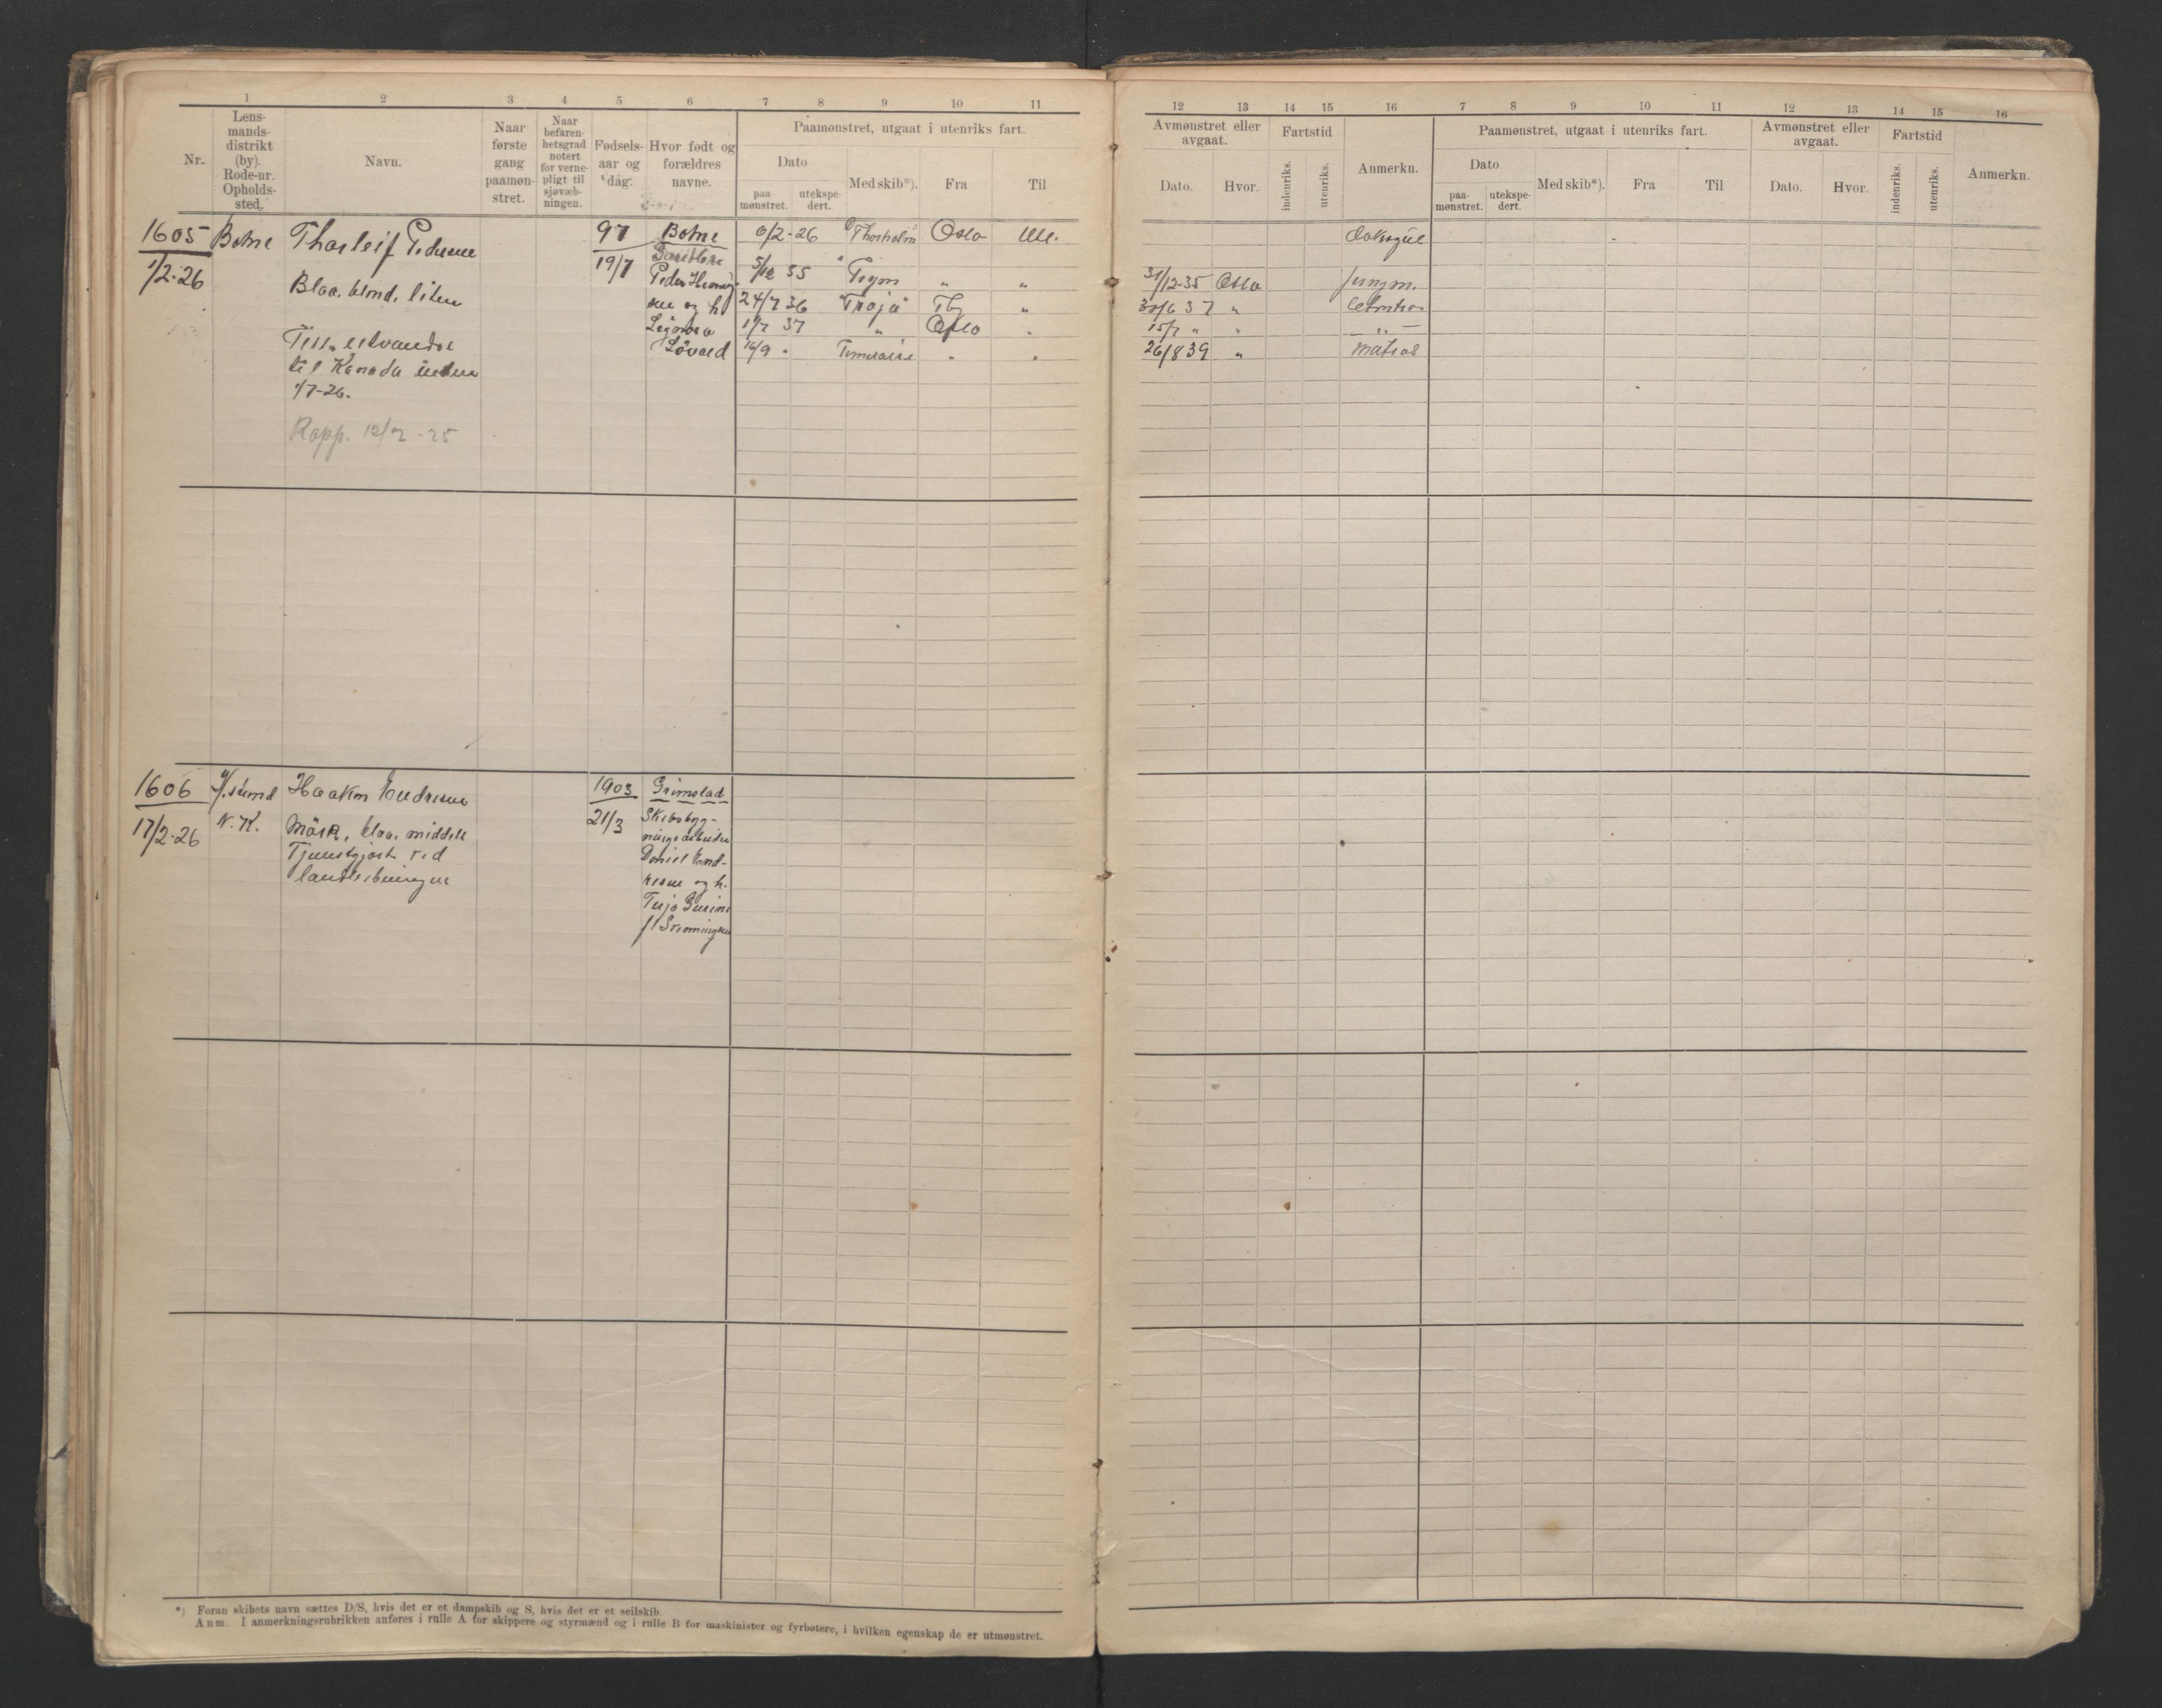 1 2 3 4 5 6 7 8 9 10 11
Nr.
Lens-
mands-
distrikt
(by).
Rode-nr.
Opholds-
sted.
Navn.
Naar
første
gang
paamøn-
stret.
Naar
befaren-
hetsgrad
notert
for verne-
pligt til
sjøvæb-
ningen.
Fødsels-
aar og
dag.
Hvor født og
forældres
navne.
Paamønstret, utgaat i utenriks fart.
Dato
paa-
mønstret.
utekspe-
dert.
Med skib*).
Fra
Til
1605 Botne Thorleif Pedersen 97 Botne 6/2-26 Thorsholm Oslo Utl.
1/2-26 Blaa, blond, liten 19/7 Peder 5/12 35
og h 24/7 36 "Troja" Tbg "
1/7 37 " Oslo "
Løvald 16/9 " Temeraire " "
til Kanada inden
1/7-26.
Rapp. 12/2-25
1606 Haakon Endresen 1903 Grimstad
17/2-26 N. K. Mörk, blaa, middels 21/3 Skibsbyg-
Tjenestgjort ved ningsarbeider
Daniel End-
resen og h.
12 13 14 15 16 7 8 9 10 11 12 13 14 15 16
Avmønstret eller
avgaat.
Dato.
Hvor.
Fartstid
indenriks.
utenriks.
Anmerkn.
Paamønstret, utgaat i utenriks fart.
Dato
paa-
mønstret.
utekspe-
dert.
Med skib*).
Fra
Til
Avmønstret eller
avgaat.
Dato.
Hvor.
Fartstid
indenriks.
utenriks.
Anmerkn.
31/12-35 Oslo Jungm.
30/6 37 "
15/7 " " — " —
26/8 39 " Matros
*) Foran skibets navn sættes D/S, hvis det er et dampskib og S, hvis det er et seilskib.
Anm. I anmerkningsrubrikken anføres i rulle A for skippere og styrmænd og i rulle B for maskinister og fyrbøtere, i hvilken egenskap de er utmønstret.